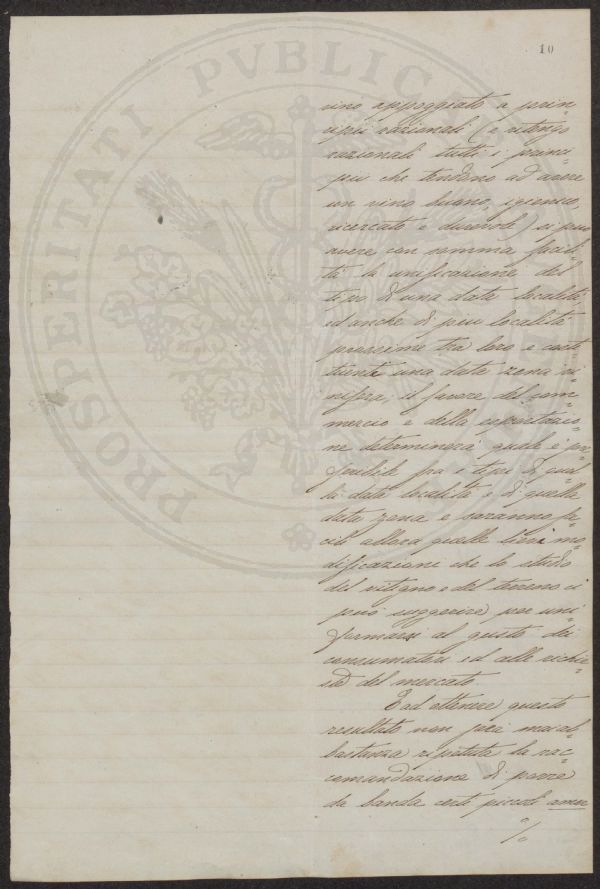 10
PROSPERITATI PVBLICAE
vino appoggiato a prin-
cipii razionali (e ritengo
razionali tutti i princi-
pii che tendono ad avere
un vino buono, igienico,
ricercato e durevole) si può
avere con somma facili-
tà la unificazione del
tipo di una data località,
ed anche di più località
prossime tra loro e costi-
tuenti una data zona vi-
nifera; il favore del com-
mercio e della esportazio-
ne determinerà quale è pre-
feribile fra i tipi di quel-
la data località e di quella
data zona e saranno fa-
cili allora quelle lievi mo-
dificazioni che lo studio
del vitigno e del terreno ci
può suggerire per uni-
formarsi al gusto dei
consumatori ed alle richie-
ste del mercato.
Ed ottenere questo
resultato non sarà mai ab-
bastanza ripetuta la rac-
comandazione di porre
da banda certi piccoli amor